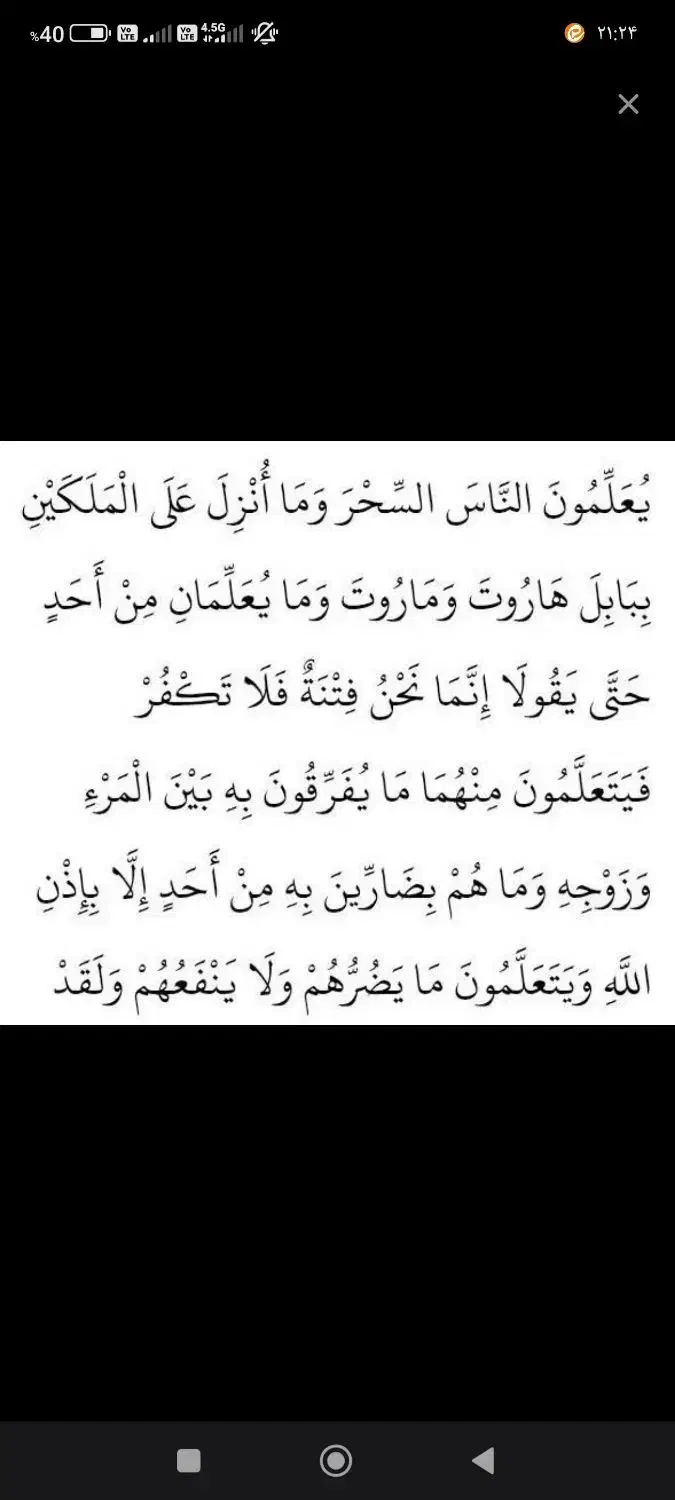 %40 Vo LTE Vo LTE 4.5G ۲۱:۲۴
يُعَلِّمُونَ النَّاسَ السِّحْرَ وَمَا أُنْزِلَ عَلَى الْمَلَكَيْنِ
بِبَابِلَ هَارُوتَ وَمَارُوتَ وَمَا يُعَلِّمَانِ مِنْ أَحَدٍ
حَتَّى يَقُولَا إِنَّمَا نَحْنُ فِتْنَةٌ فَلَا تَكْفُرْ
فَيَتَعَلَّمُونَ مِنْهُمَا مَا يُفَرِّقُونَ بِهِ بَيْنَ الْمَرْءِ
وَزَوْجِهِ وَمَا هُمْ بِضَارِّينَ بِهِ مِنْ أَحَدٍ إِلَّا بِإِذْنِ
اللَّهِ وَيَتَعَلَّمُونَ مَا يَضُرُّهُمْ وَلَا يَنْفَعُهُمْ وَلَقَدْ